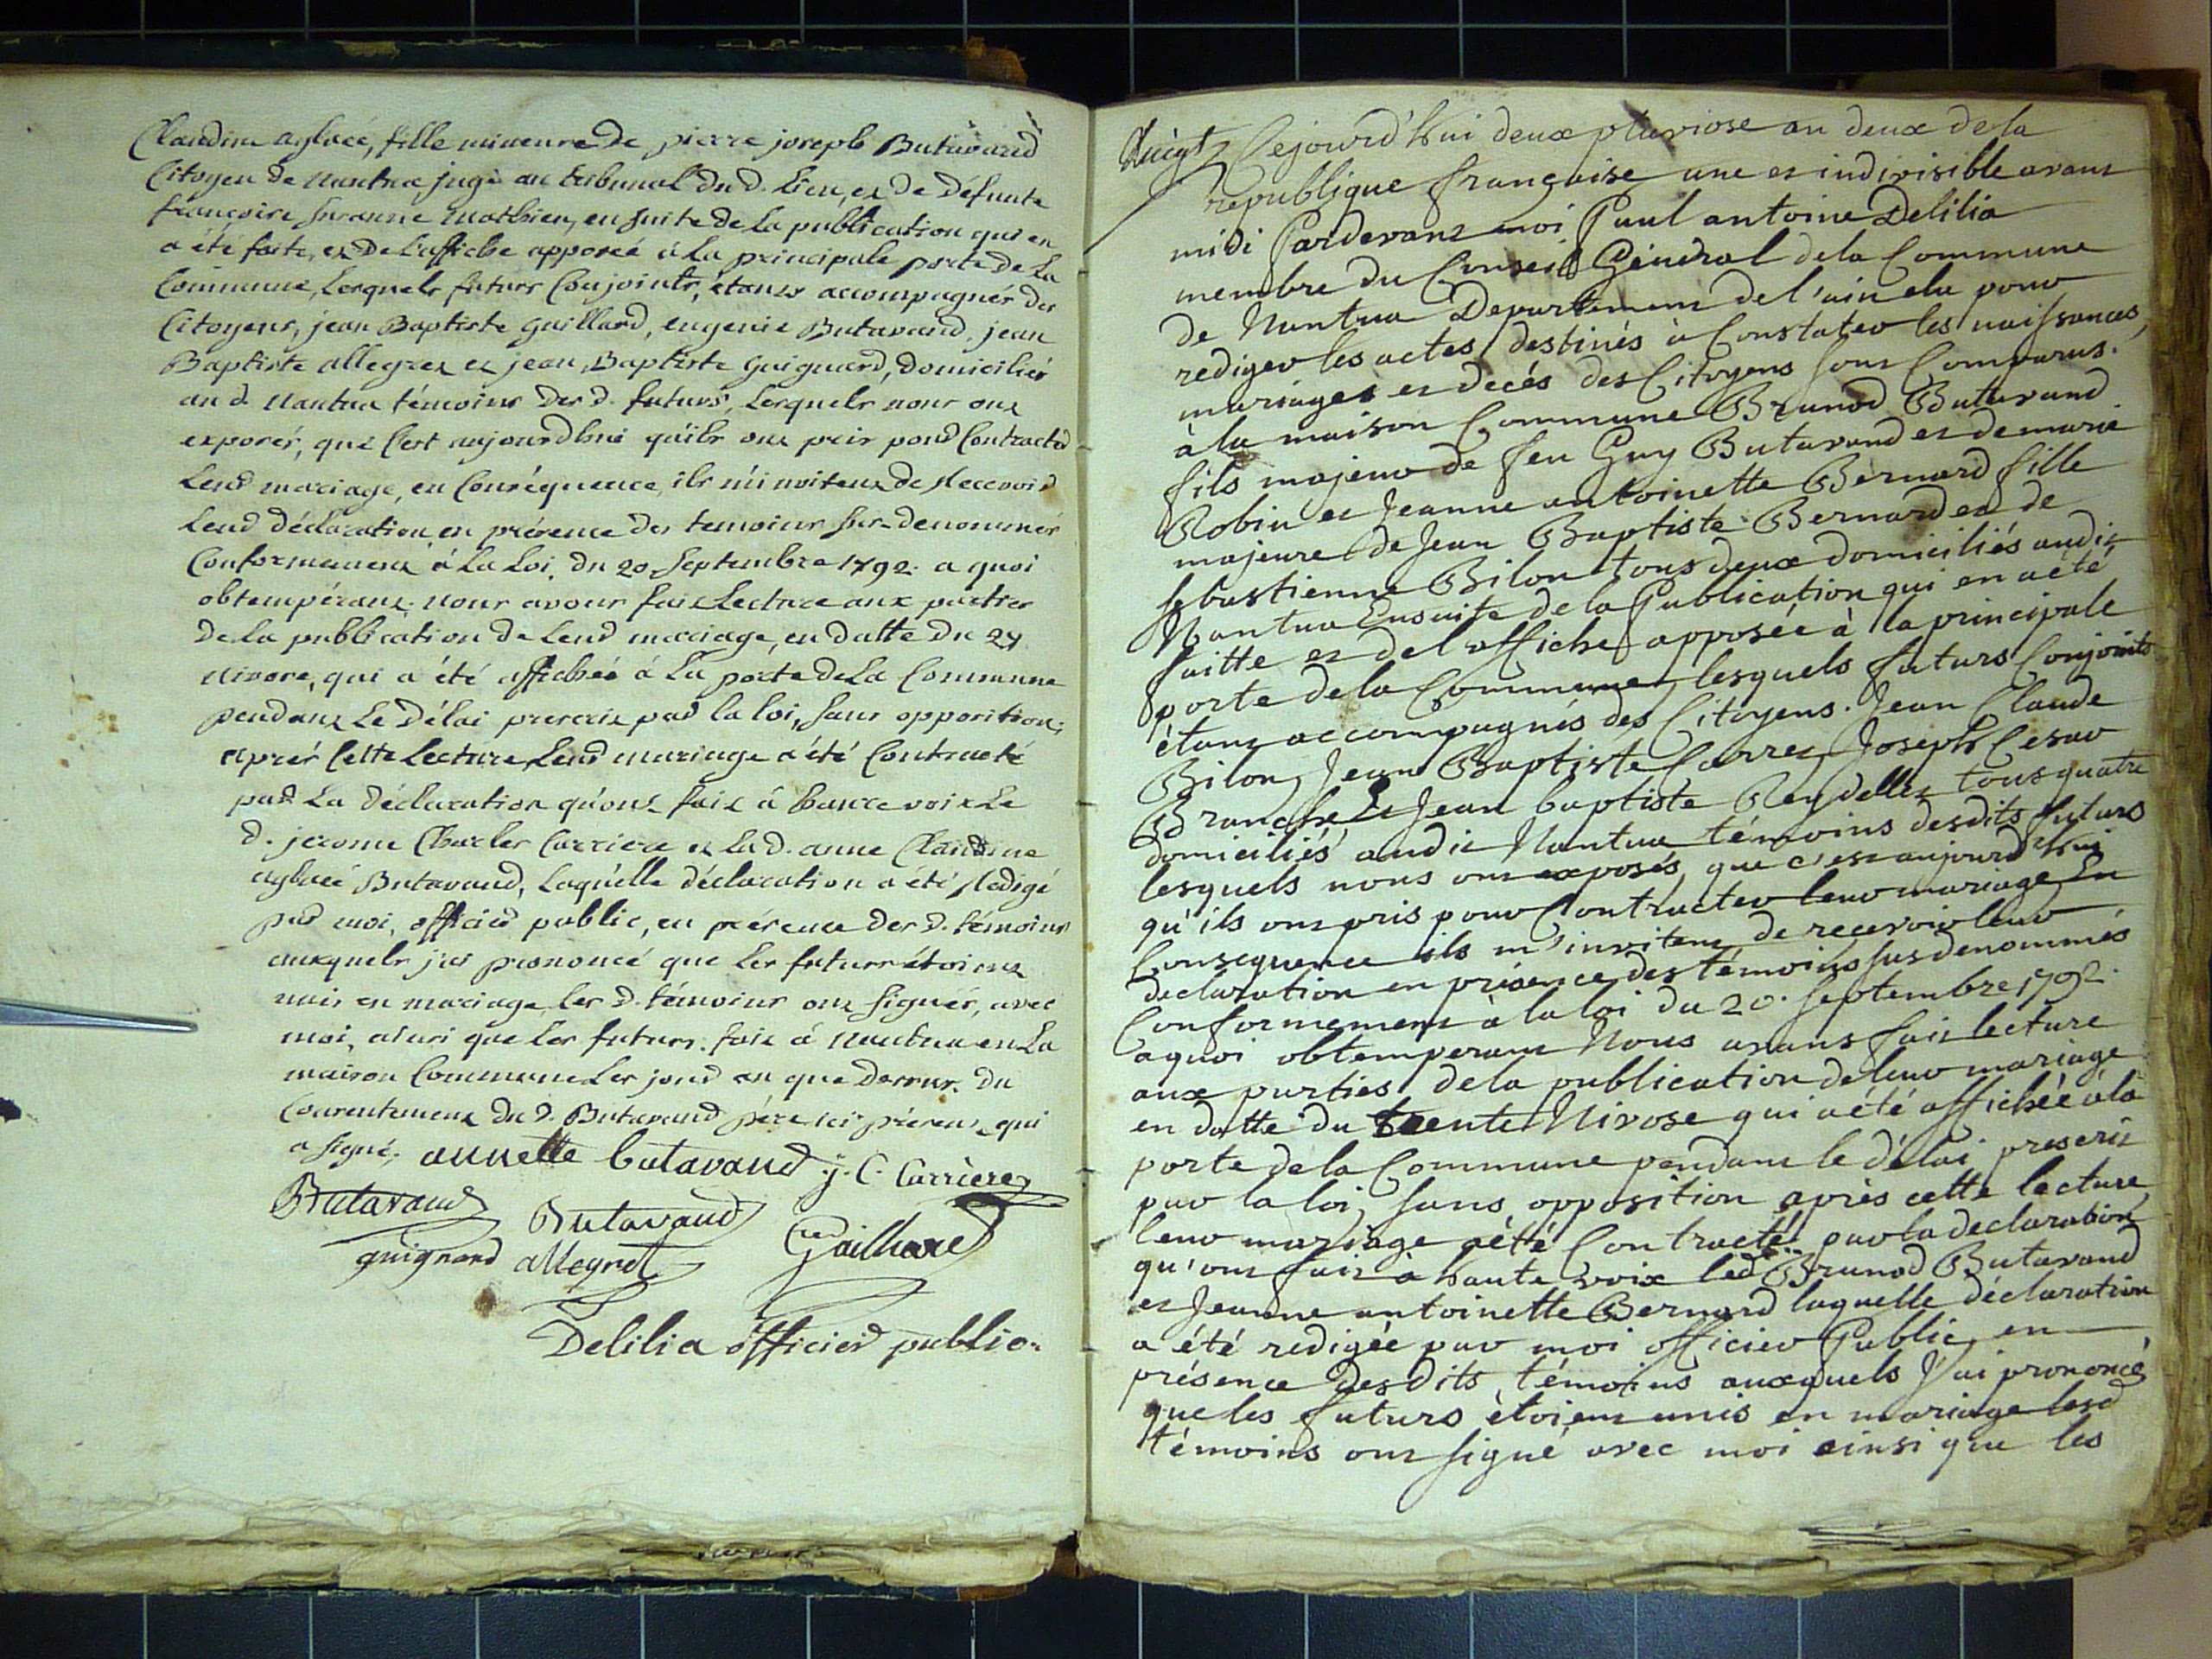 Claudine aglaée, fille mineure de pierre joseph Butavand
Citoyen de Nantua juge au tribunal du d. Lieu, et de Défunte
françoise Suzanne Mathieu, en suite de La publication qui en
a été faite, et De L'affiche apposée à La principale porte de La
Commune, Lesquels futurs Conjoints, étants accompagnés des
Citoyens, jean Baptiste Gaillard, eugenie Butavand, jean
Baptiste allegret et jean Baptiste Guignard, Domiciliés
au d. Nantua témoins des d. futurs, Lesquels nous ont
exposés, que C'est aujourdhui qu'ils ont pris pour Contracter
Leur mariage, en Conséquence, ils m'invitent De Recevoir
Leur déclaration en présence des temoins sus-denommés
Conformement à La Loi, du 20 Septembre 1792. a quoi
obtempérant. Nous avons fait Lecture aux parties
De La publication de Leur mariage, en datte Du 27
Nivose, qui a été affichée à La porte de La Commune
pendant Le Délai prescrit par la loi, sans opposition;
après Cette Lecture Leur mariage a été Contracté
par La déclaration qu'ont fait à haute voix Le
d. jerome Charles Carriere et La d. anne Claudine
aglaée Butavand, Laquelle déclaration a été Redigé
par moi, officier public, en présence des d. témoins
auxquels j'ai prononcé que Les futurs étoient
unis en mariage, les d. témoins ont signés, avec
moi, ainsi que Les futurs. fait à Nantua en La
maison Commune Les jour an que Dessus. Du
Consentement du d. Butavand père ici présent, qui
a signé, annette butavand j. C. Carrière
Butavand Butavand Gaillard
guignard allegret
Delilia officier public.
Cejourd'hui deux pluviose an deux de la
republique française une et indivisible avant
midi Pardevant moi Paul antoine Delilia
membre du Conseil Général de la Commune
de Nantua Departement de l'ain elu pour
rediger les actes destinés à Constater les naissances,
mariages et decés des Citoyens sont Comparus.
à la maison Commune Brunod Butavand
fils majeur de feu Guy Butavand et de marie
Robin et Jeanne antoinette Bernard fille
majeure de Jean Baptiste Bernard et de
sebastienne Bilon tous deux domiciliés audit
Nantua Ensuite de la Publication qui en a été
faitte et de l'affiche apposée à la principale
porte de la Commune, lesquels futurs Conjoints
étant accompagnés des Citoyens. Jean Claude
Bilon, Jean Baptiste Carrez, Joseph Cesar
Branche et Jean baptiste Reydellet tous quatre
domiciliés audit Nantua témoins desdits futurs
lesquels nous ont exposés, que c'est aujourd'hui
qu'ils ont pris pour Contracter leur mariage, En
Consequence ils m'invitent de recevoir leur
declaration en présence des témoins susdenommés
Conformement à la loi du 20. septembre 1792.
aquoi obtemperant Nous avons fait lecture
aux parties de la publication de leur mariage
en datte du trente Nivose qui a été affichée à la
porte de la Commune pendant le délai prescrit
par la loi, sans opposition après cette lecture,
leur mariage a été Contracté par la declaration
qu'ont fait a haute voix led Brunod Butavand
et Jeanne antoinette Bernard laquelle déclaration
a été redigée par moi officier Public en
présence desdits témoins auxquels J'ai prononcé
que les futurs étoient unis en mariage lesd
témoins ont signé avec moi ainsi que les